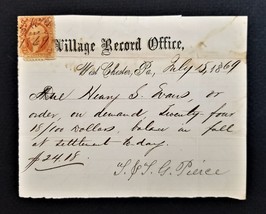 Village Record Office,
West Chester, Pa, July 15, 1869
Due Henry S. Evans, or
order, on demand, Twenty four
18/100 Dollars, balance in full
at settlement to day.
$24.18
T. & T. G. Pierce